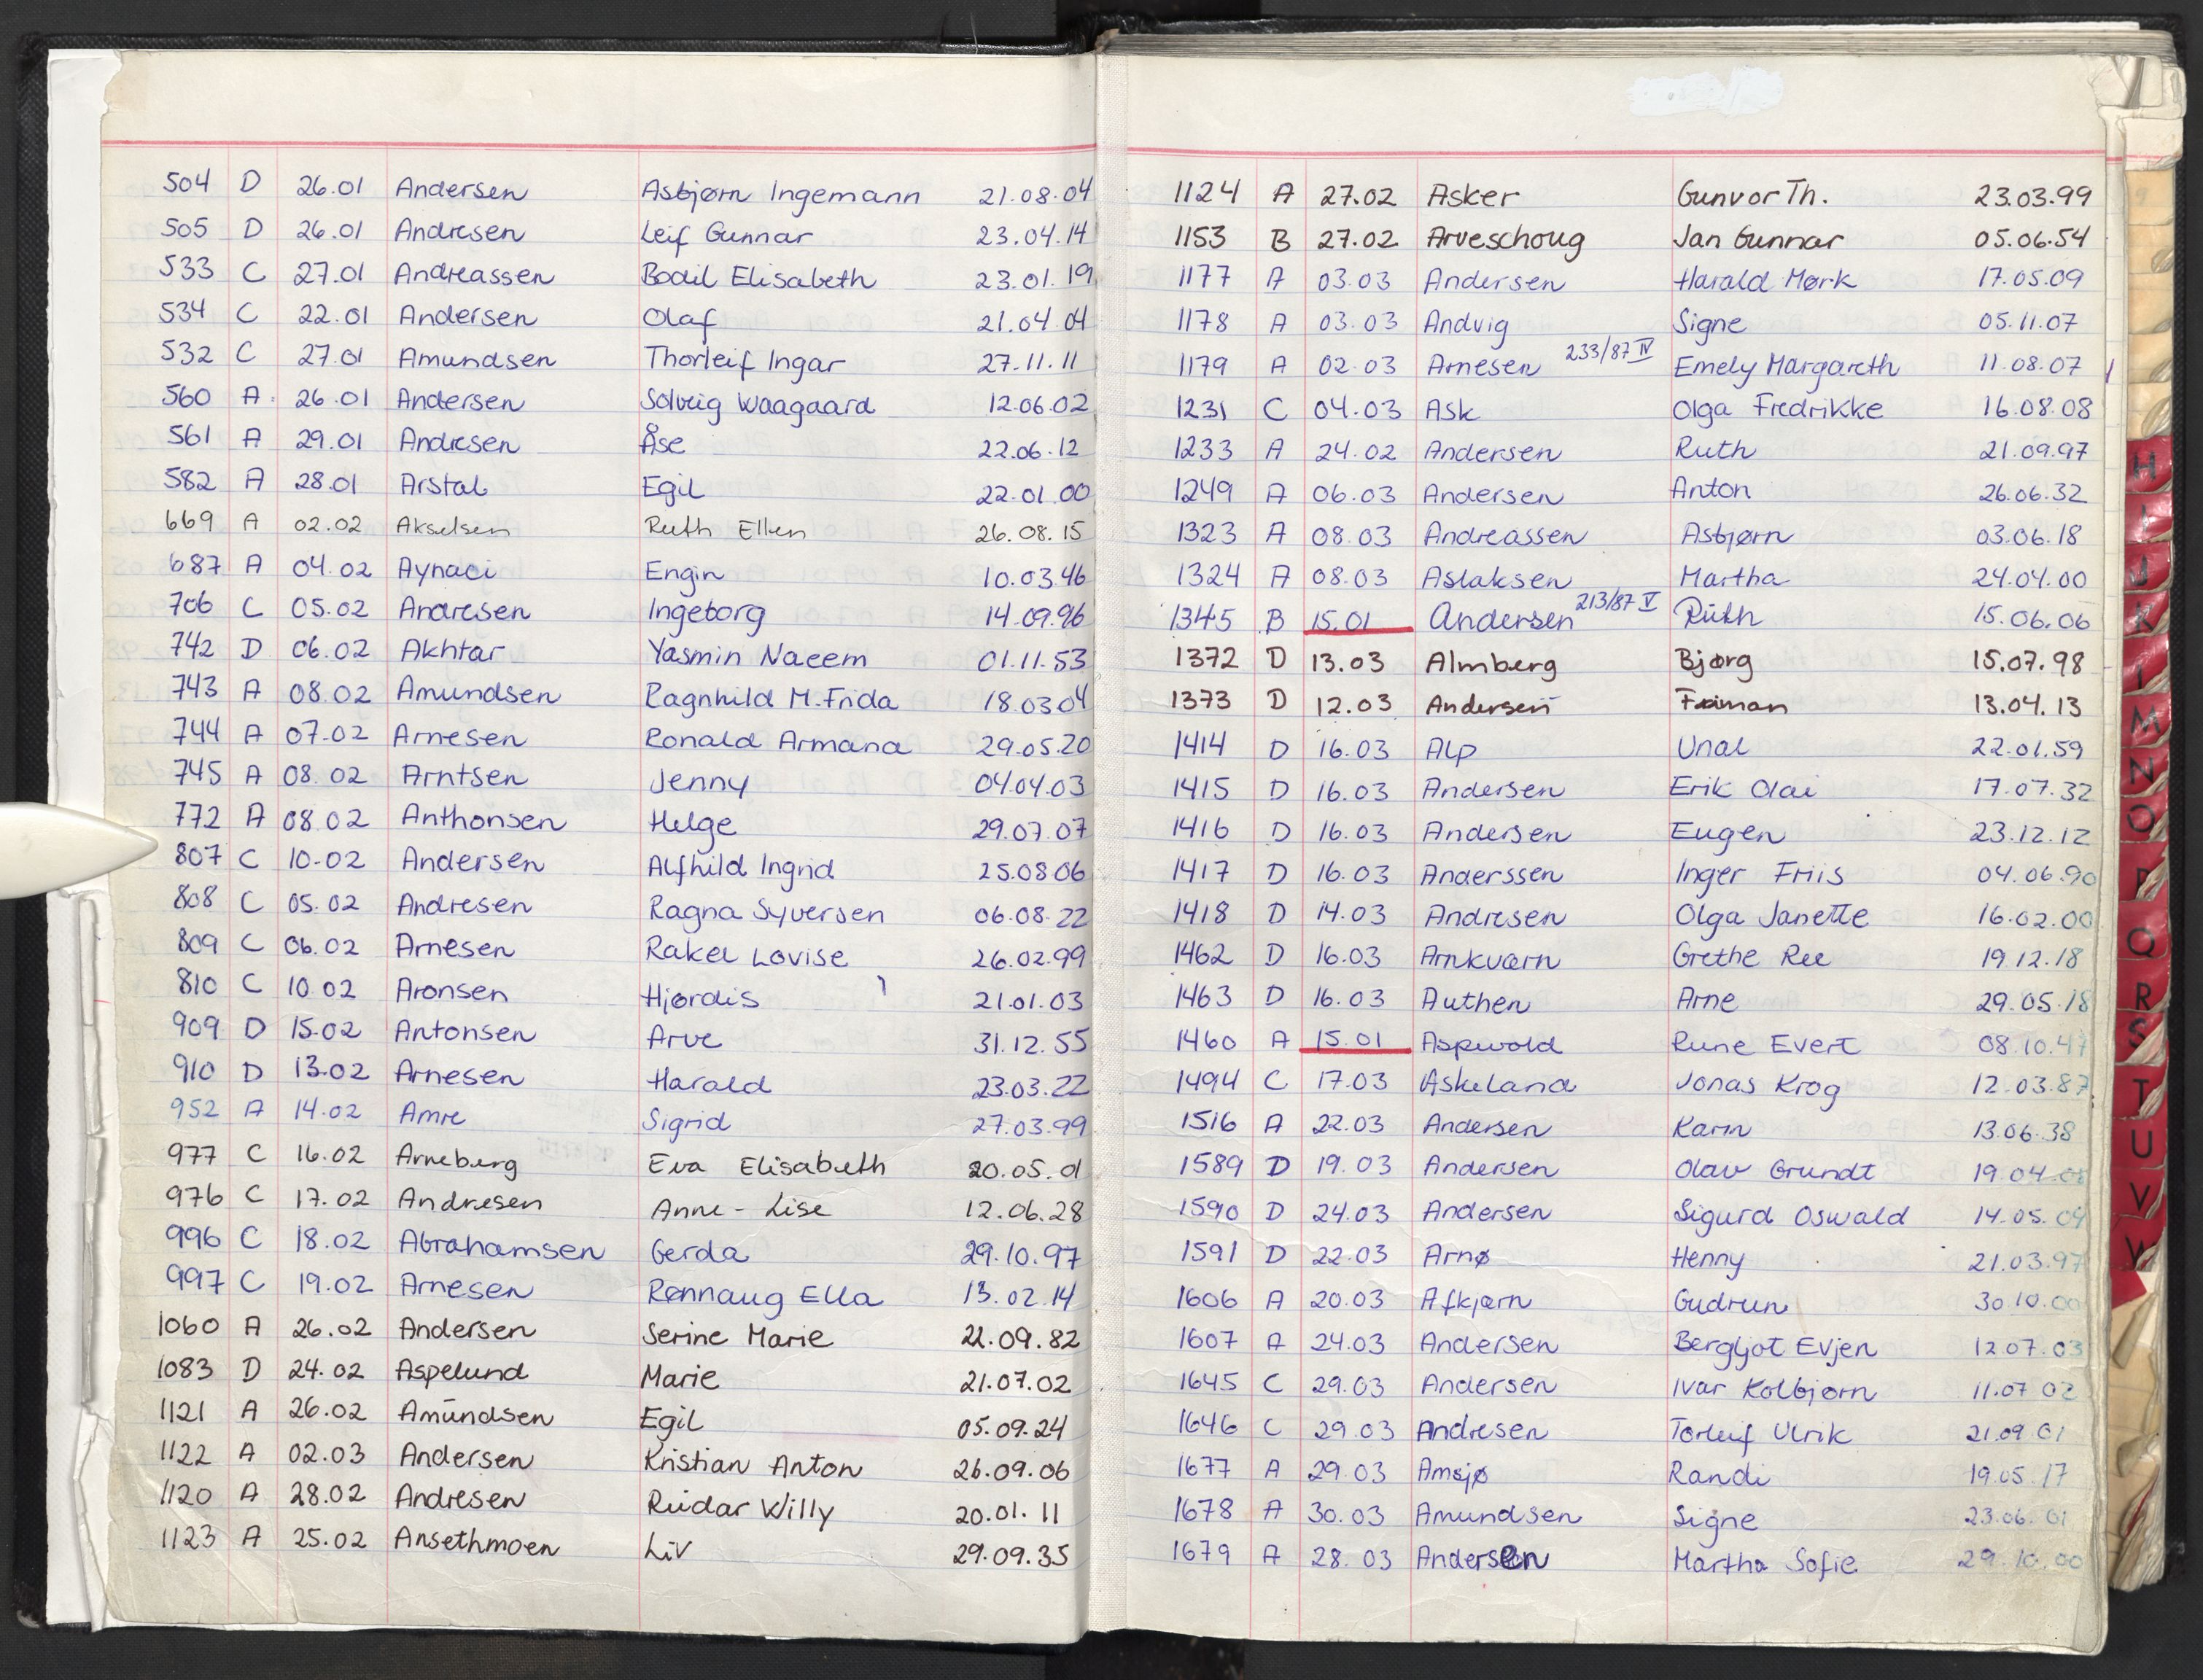 504 D 26.01 Andersen Asbjørn Ingemann 21.08.04
505 D 26.01 Andresen Leif Gunnar 23.04.14
533 C 27.01 Andreassen Bodil Elisabeth 23.01.19
534 C 22.01 Andersen Olaf 21.04.04
532 C 27.01 Amundsen Thorleif Ingar 27.11.11
560 A 26.01 Andersen Solveig Waagaard 12.06.02
561 A 29.01 Andresen Åse 22.06.12
582 A 28.01 Arstal Egil 22.01.00
669 A 02.02 Akselsen Ruth Ellen 26.08.15
687 A 04.02 Aynaci Engin 10.03.46
706 C 05.02 Andresen Ingeborg 14.09.96
742 D 06.02 Akhtar Yasmin Naeem 01.11.53
743 A 08.02 Amundsen Ragnhild M.Frida 18.03.04
744 A 07.02 Arnesen Ronald Armand 29.05.20
745 A 08.02 Arntsen Jenny 04.04.03
772 A 08.02 Anthonsen Helge 29.07.07
807 C 10.02 Andersen Alfhild Ingrid 25.08.06
808 C 05.02 Andresen Ragna Syversen 06.08.22
809 C 06.02 Arnesen Rakel Lovise 26.02.99
810 C 10.02 Aronsen Hjørdis 21.01.03
909 D 15.02 Antonsen Arve 31.12.55
910 D 13.02 Arnesen Harald 23.03.22
952 A 14.02 Amre Sigrid 27.03.99
977 C 16.02 Arneberg Eva Elisabeth 20.05.01
976 C 17.02 Andresen Anne-Lise 12.06.28
996 C 18.02 Abrahamsen Gerda 29.10.97
997 C 19.02 Arnesen Rønnaug Ella 13.02.14
1060 A 26.02 Andersen Serine Marie 22.09.82
1083 D 24.02 Aspelund Marie 21.07.02
1121 A 26.02 Amundsen Egil 05.09.24
1122 A 02.03 Andersen Kristian Anton 26.09.06
1120 A 28.02 Andresen Reidar Willy 20.01.11
1123 A 25.02 Ansethmoen Liv 29.09.35
1124 A 27.02 Asker Gunvor Th. 23.03.99
1153 B 27.02 Arveschoug Jan Gunnar 05.06.54
1177 A 03.03 Andersen Harald Mørk 17.05.09
1178 A 03.03 Andvig Signe 05.11.07
1179 A 02.03 Arnesen 233/87 IV Emely Margareth 11.08.07
1231 C 04.03 Ask Olga Fredrikke 16.08.08
1233 A 24.02 Andersen Ruth 21.09.97
1249 A 06.03 Andersen Anton 26.06.32
1323 A 08.03 Andreassen Asbjørn 03.06.18
1324 A 08.03 Aslaksen Martha 24.04.00
1345 B 15.01 Andersen 213/87 V Ruth 15.06.06
1372 D 13.03 Almberg Bjørg 15.07.98
1373 D 12.03 Andersen 13.04.13
1414 D 16.03 Alp Unal 22.01.59
1415 D 16.03 Andersen Erik Olai 17.07.32
1416 D 16.03 Andersen Eugen 23.12.12
1417 D 16.03 Anderssen Inger Friis 04.06.90
1418 D 14.03 Andresen Olga Janette 16.02.00
1462 D 16.03 Arnkværn Grethe Ree 19.12.18
1463 D 16.03 Authen Arne 29.05.18
1460 A 15.01 Aspwold Rune Evert 08.10.47
1494 C 17.03 Askeland Jonas Krog 12.03.87
1516 A 22.03 Andersen Karin 13.06.38
1589 D 19.03 Andersen Olav Grundt
1590 D 24.03 Andersen Sigurd Oswald 14.05.04
1591 D 22.03 Arnø Henny 21.03.97
1606 A 20.03 Afkjærn Gudrun 30.10.00
1607 A 24.03 Andersen Bergljot Evjen 12.07.03
1645 C 29.03 Andersen Ivar Kolbjørn 11.07.02
1646 C 29.03 Andresen Torleif Ulrik 21.09.01
1677 A 29.03 Amsjø Randi 19.05.17
1678 A 30.03 Amundsen Signe 23.06.01
1679 A 28.03 Andersen Martha Sofie 29.10.00
H
I
J
K
L
M
N
O
P
Q
R
S
T
U
V
W